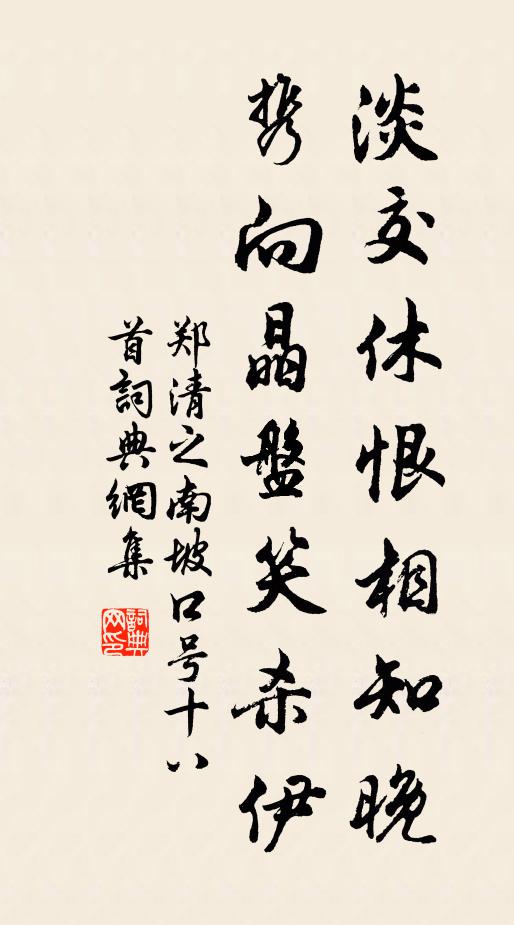 淡交休恨相知晚
携向晶盤笑杀伊
郑清之南坡口号十八
首詞典網集
詞典网印